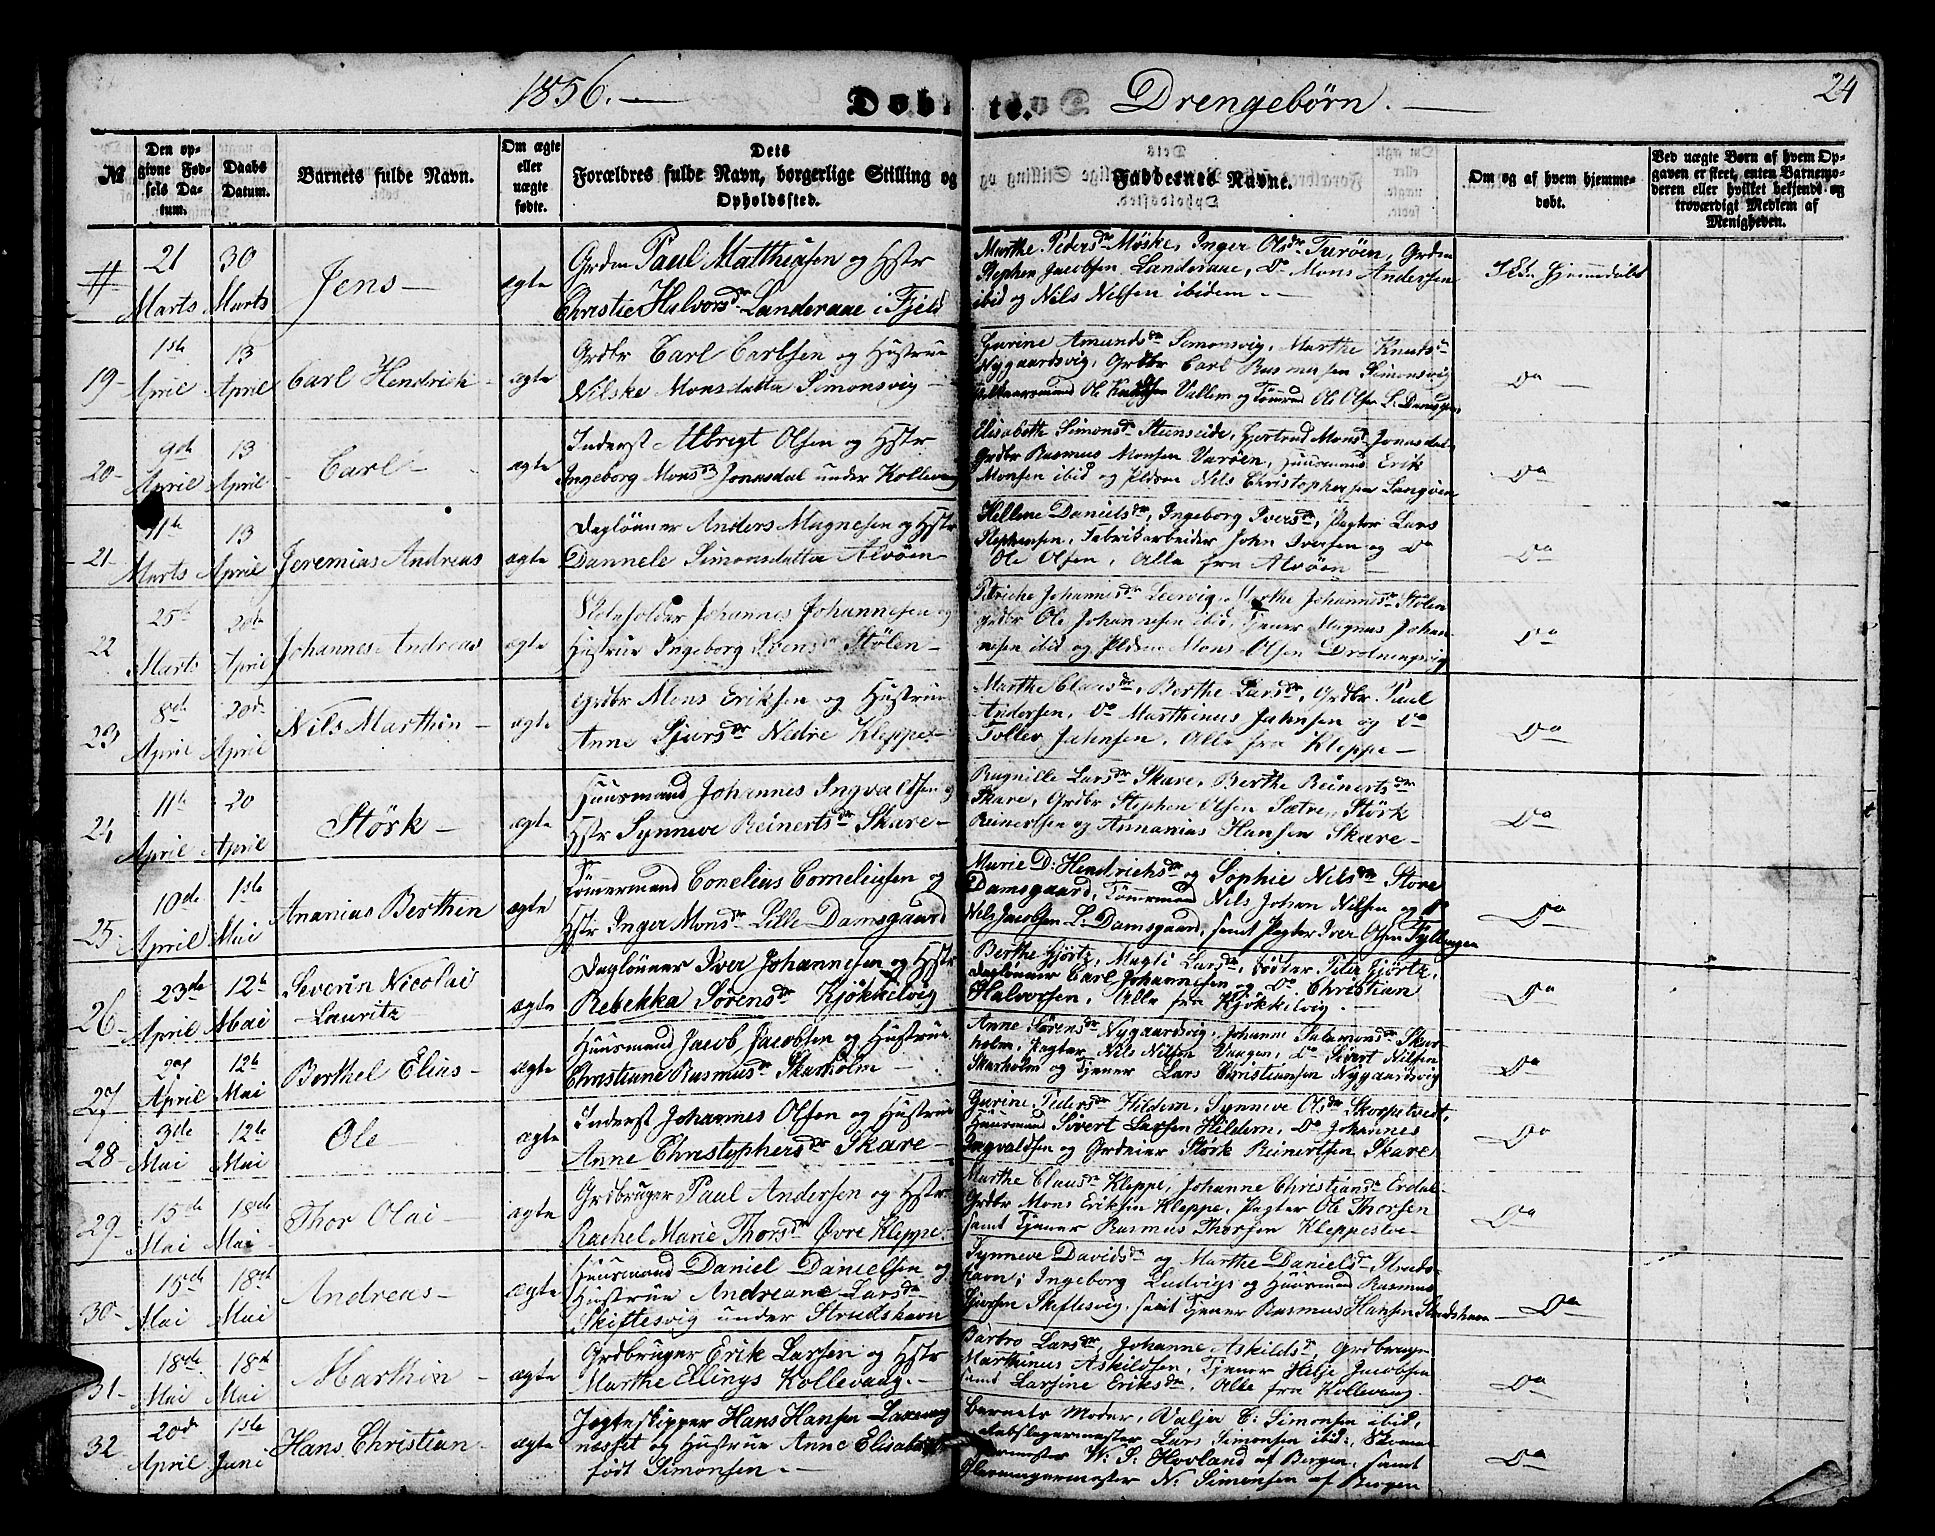 1856. — Døbte. Drengebørn. — 24
№
Den opgivne Fødsels Datum.
Daabs Datum.
Barnets fulde Navn.
Om ægte eller uægte fødte.
Dets Forældres fulde Navn, borgerlige Stilling og Opholdssted.
Faddernes Navne.
Om og af hvem hjemmedøbt.
Ved uægte Børn af hvem Opgaven er skeet, enten Barnemoderen eller hvilket bekjendt og troværdigt Medlem af Menigheden.
# 21 Marts 30 Marts Jens — ægte
Grdm Paul Matthiasen og Hstr
Christie Halvorsdr Landeraae i Fjeld
Marthe Pedersdr Møske, Inger Olsdr Turøen, Grdm
Stephen Jacobsen Landeraae, Do Mons Andersen
ibid og Nils Nilsen ibidem. —
Hjemmedøbt
19 - 1ste April 13 April Carl Hendrich - ægte
Grdbr Carl Carlsen og Hustrue
Nilske Monsdatta Simonsvig —
Gurine Amundsdr Simonsvig, Marthe Knudsdr
Nygaardsvig, Grdbr Carl Rasmusen Simonsvig
Ole Knudsen Vallem og Tømrmd Ole Olsen L. Damsgaard
Do —
20 - 9de April 13 April Carl - ægte
Inderst Albregt Olsen og Hstr
Ingeborg Monsdr Jonasdal under Kollevaag
Elisabethe Simonsdr Steenseide, Gjertrud Monsdr Jonasdal
Grdbr Rasmus Monsen Varøen, Huusmand Erik
Monsen ibid og Pldrm Nils Christophersen Langøen
Do
21 - 11te Marts 13 April Jeremias Andreas ægte
Daglønner Anders Magnesen og Hstr
Dannele Simonsdatta Alvøen —
Hellene Danielsdr, Ingeborg Iversdr, Pagter Lars
Stephensen, Fabrikarbeider John Iversen og Do
Ole Olsen, Alle fra Alvøen —
Do
22 25de Marts 20de April Johannes Andreas ægte
Johannes Johannesen og
Hustrue Ingeborg Stølen —
Johannesdr Leervig, Marthe Johannesdr Stølen
Grdbr Ole Johannesen ibid, Tjener Magnus Johan-
nesen ibid og Pldrm Mons Olsen Drotningsvig
Do
23 8de April 20de April Nils Marthin — ægte
Grdbr Mons Eriksen og Hustrue
Anne Sjursdr Nedre Kleppe —
Marthe Claesdr, Berthe Larsdr, Grdbr Paul
Andersen, Do Marthinus Jahnsen og Do
Tollev Jahnsen, Alle fra Kleppe —
Do
24 11te April 20 April Størk — ægte
Huusmand Johannes Ingvaldsen og
Hstr Synneve Reinertsdr Skare —
Ragnille Larsdr Skare, Berthe Reinertsdr
Skare, Grdbr Stephen Olsen Sætre, Størk
Reinertsen og Annanias Hansen Skare —
Do
25 - 10de April 1ste Mai Ananias Berthin ægte
Tømmermand Conelius Corneliusen og
Hstr Inger Monsdr Lille Damsgaard
Marie D: Hendrichsdr og Sophie Nilsdr Store
Damsgaard, Tømrmand Nils Johan Nilsen og Do
Nils Jacobsen L. Damsgaard, samt Pagter Iver Olsen Fyllingen
Do
26 - 23de April 12te Mai Severin Nicolai ægte
- Lauritz
Dagløner Iver Johannesen og Hstr
Rebekka Sørensdr Kjøkkelvig
Berthe Gjørtz, Magli Larsdr, Peter Gjørtz,
Dagløner Carl Johannesen og Do Christian
Halvorsen, Alle fra Kjøkkelvig.
Do
27 April 12te Mai Berthel Elias - ægte
Huusmand Jacob Jacobsen og Hustrue
Christiane Rasmusdr Skarholm —
Anne Sørensdr Nygaardsvig, Johanne Salamonsdr Skar-
holm, Pagter Nils Nilsen Vaagen, Do Sivert Nilsen
Skarholm og Tjener Lars Christiansen Nygaardsvig
Do
28 - 3die Mai 12te Mai Ole — ægte
Inderst Johannes Olsen og Hustrue
Anne Christophersdr Skare —
Gurine Pedersdr Hildern, Synneve Olsdr Skorpetvedt,
Huusmand Sivert Larsen Hildern, Do Johannes
Ingvaldsen og Grdeier Størk Reinertsen Skare
Do
29 - 15de Mai 18de Mai Thor Olai — ægte
Grdbruger Paul Andersen og Hstr
Rachel Marie Thorsdr Øvre Kleppe.
Marthe Clausdr Kleppe, Johanne Christiansdr Erdal
Grdbr Mons Eriksen Kleppe, Pagter Ole Thorsen
samt Tjener Rasmus Thorsen Kleppestve
Do
30 - 15de Mai 18de Mai Andreas — ægte
Huusmand Daniel Danielsen og
Hustrue Andreane Larsdr
Skiftesvig under Strudshavn
Synneve Davidsdr og Marthe Danielsdr Struds-
havn; Ingeborg Ludvigs og Huusmand Rasmus
Sjursen Skiftesvig, samt Tjener Rasmus Hansen Strudshavn —
Do
31 - 18de Mai 18de Mai Marthin — ægte
Grdbruger Erik Larsen og Hstr
Marthe Ellings Kollevaag. —
Barbro Larsdr, Johanne Askildsdr, Grdbruger
Marthinus Askildsen, Tjener Helje Jacobsen
samt Larsine Eriksdr, Alle fra Kollevaag.
Do
32 20de April 1ste Juni Hans Christian - ægte
Jægteskipper Hans Hansen Laxevaag
næsset og Hustrue Anne Elisabeth
født Simonsen. —
Barnets Moder, Valja C: Simonsen ibid,
Lars Simonsen ibid, Skoma-
germester W. S. Hovland af Bergen, samt
Glarmestermester N. Simonsen af Bergen
Do